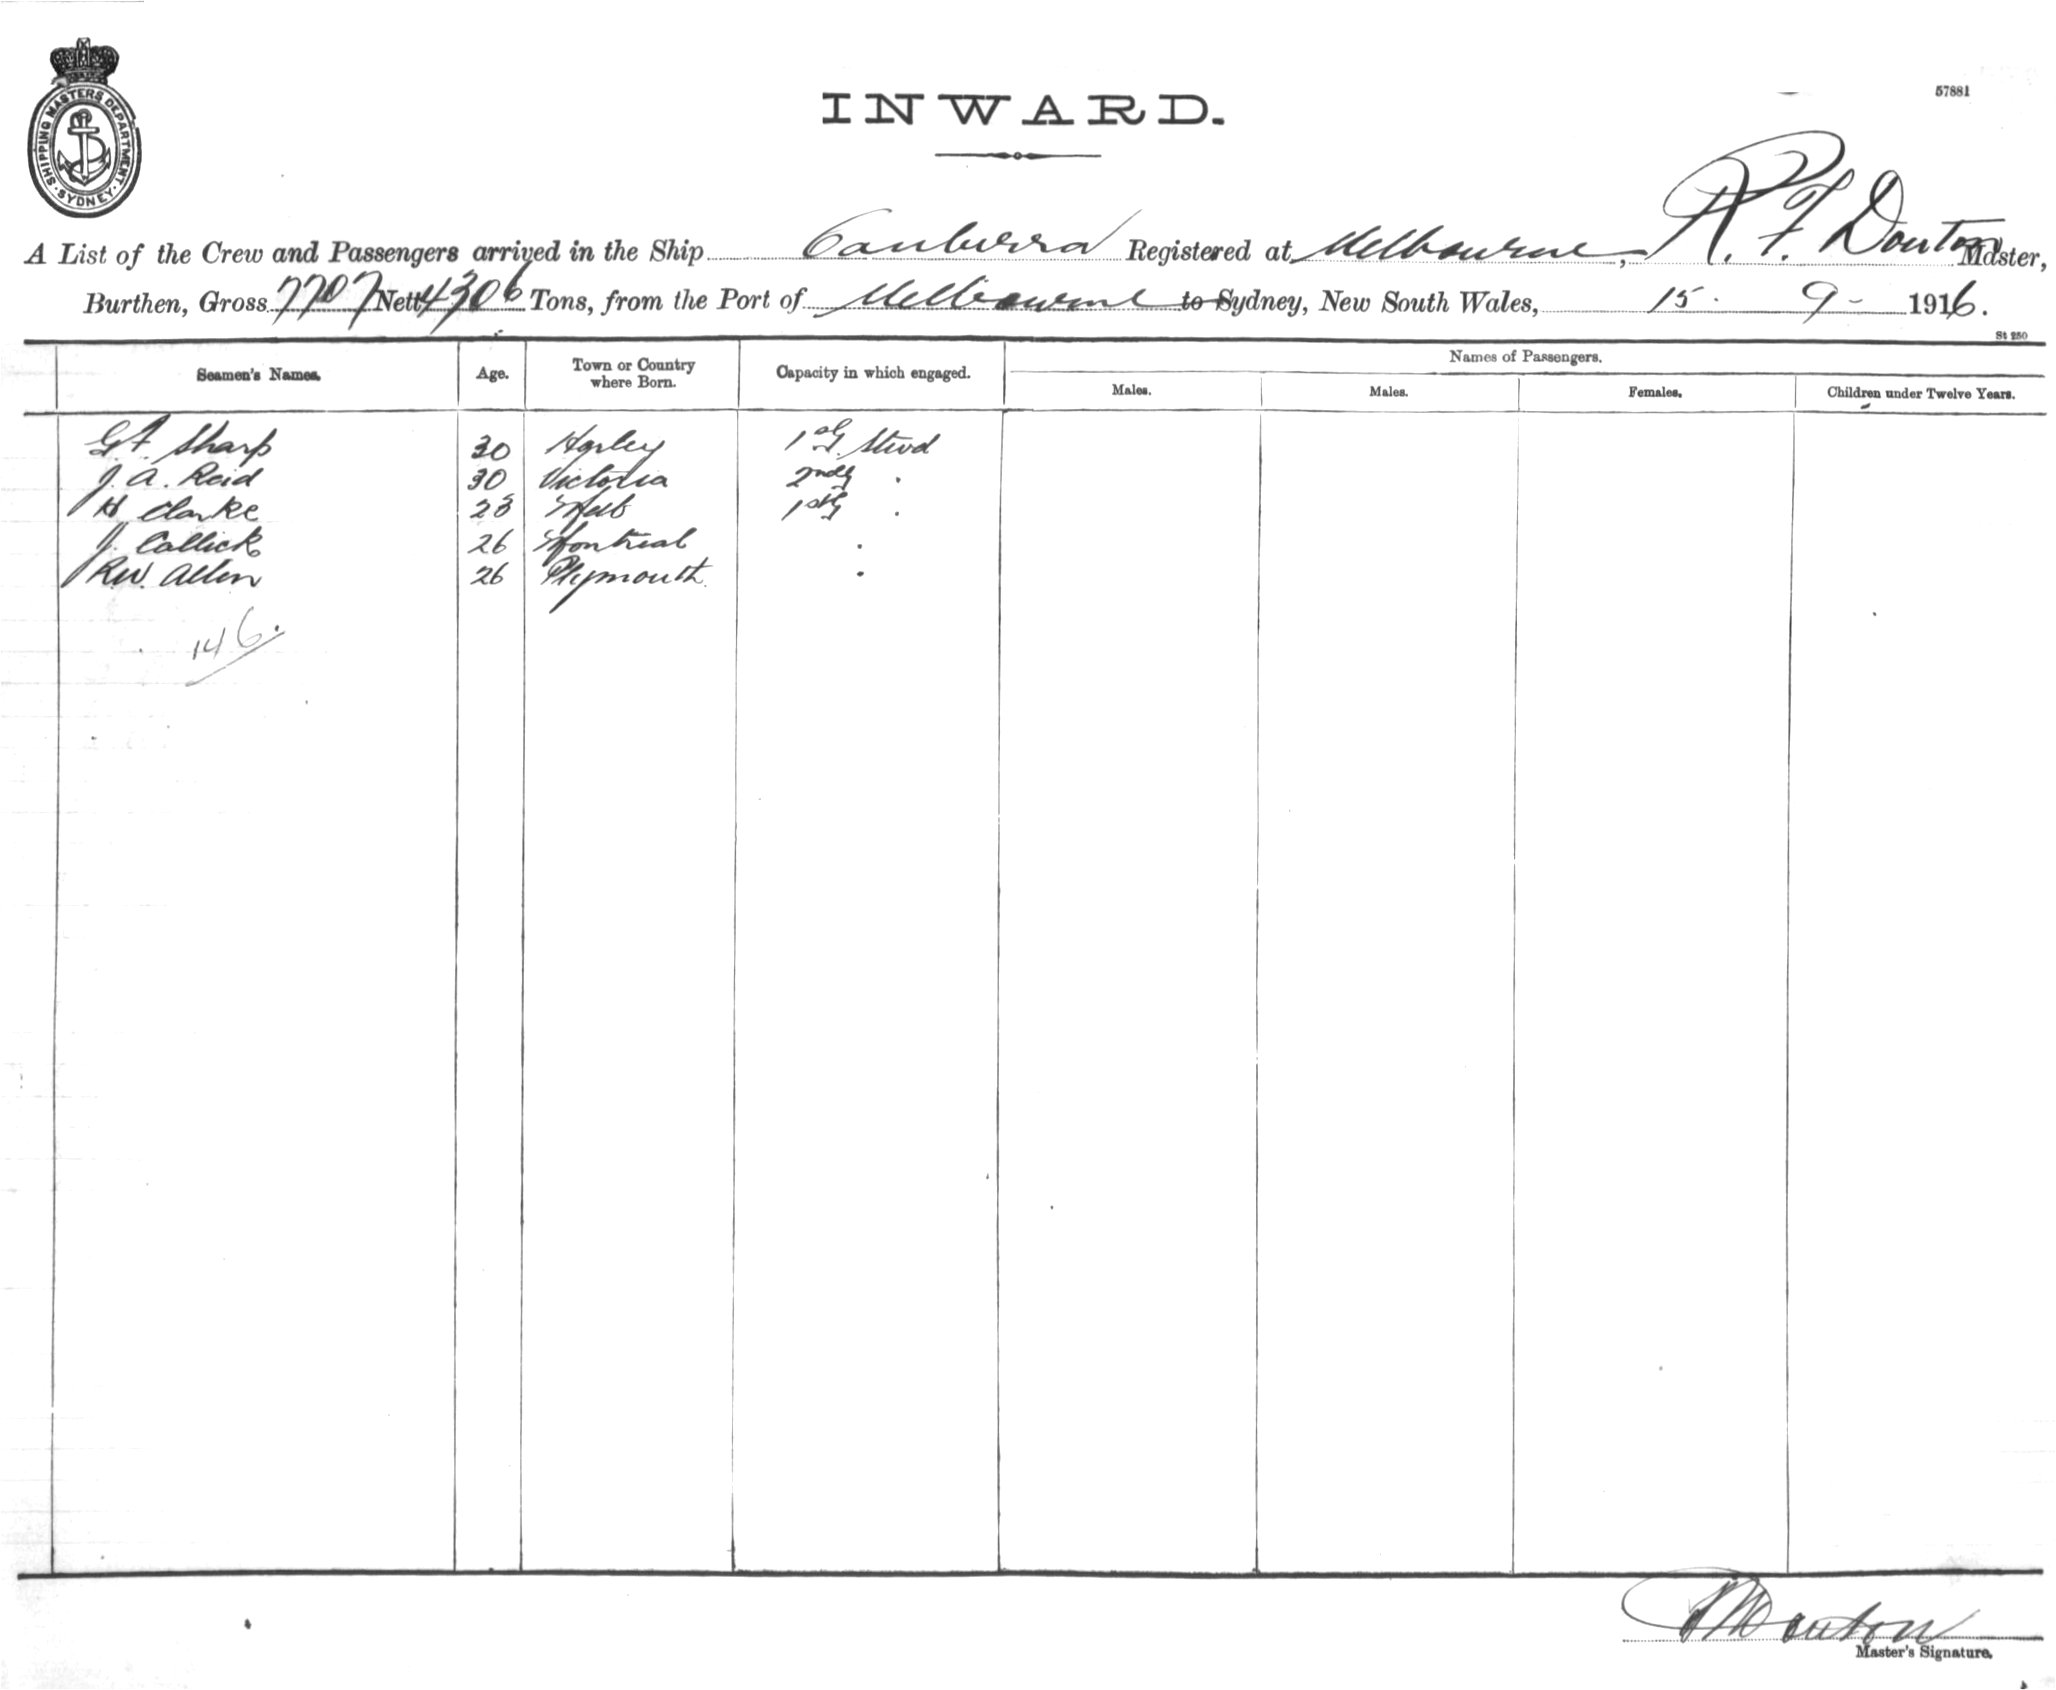 SHIPPING MASTERS DEPARTMENT. SYDNEY
INWARD.
57881
A List of the Crew and Passengers arrived in the Ship Canberra Registered at Melbourne, R. F. Douton Master,
Burthen, Gross 7707 Nett 4306 Tons, from the Port of Melbourne to Sydney, New South Wales, 15. 9 - 1916.
St 250
Seamen's Names. Age. Town or Country where Born. Capacity in which engaged. Names of Passengers.
Males. Males. Females. Children under Twelve Years.
G. F. Sharp 30 Harley 1st G. Stwd
J. A. Reid 30 Victoria 2nd G "
H Clarke 28 Melb 1st G "
J. Callick 26 Montreal "
R.W. Allen 26 Plymouth "
146.
Douton
Master's Signature.